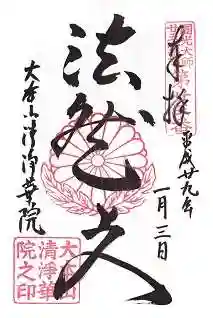 奉拝
平成廿九年
一月三日
法然上人
大本山清浄華院
大本山
清浄華
院之印